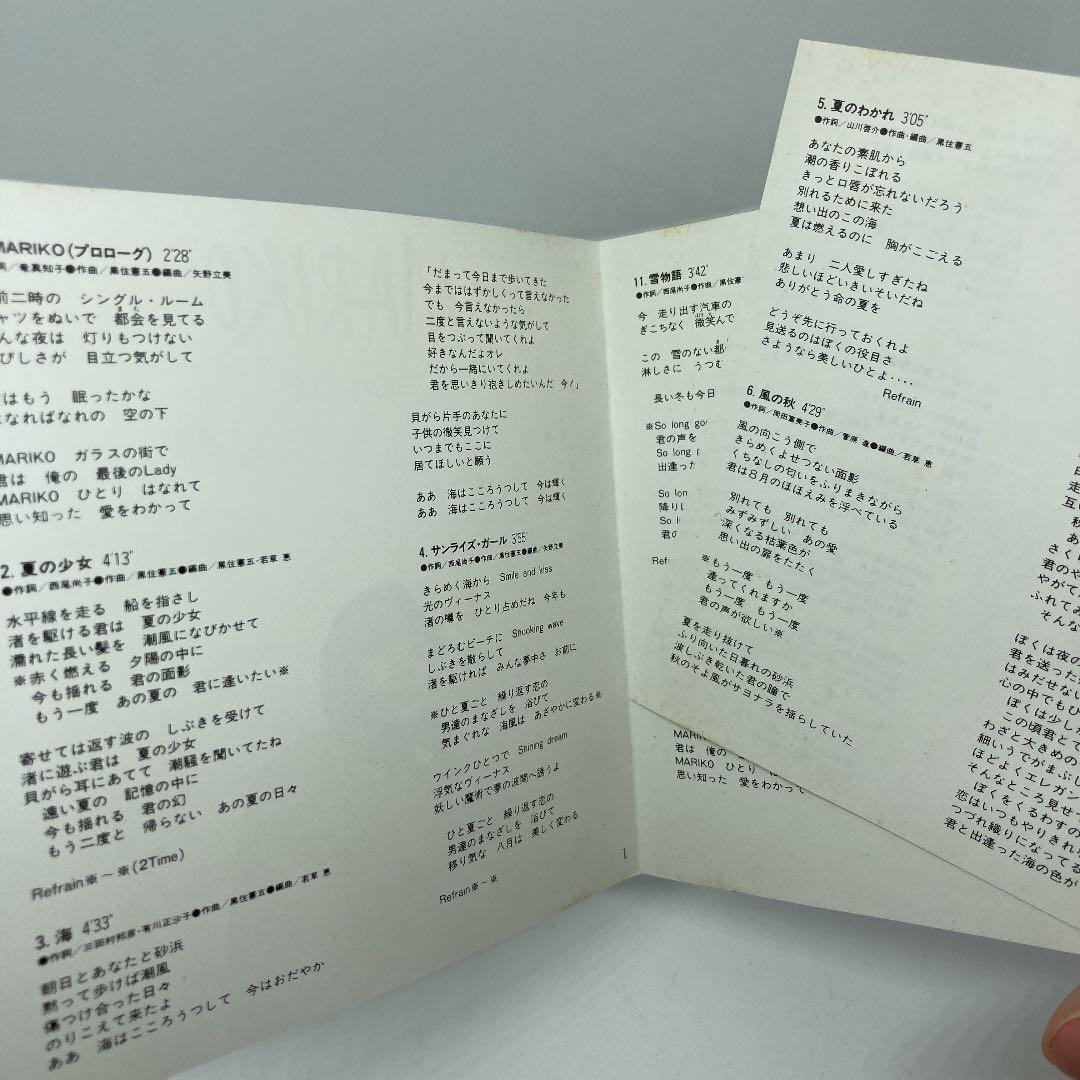 MARIKO(プロローグ) 2'28"
／竜真知子●作曲／黒住憲五●編曲／矢野立美
前二時の シングル・ルーム
ャツをぬいで 都会を見てる
まち
んな夜は 灯りもつけない
びしさが 目立つ気がして
はもう 眠ったかな
なればなれの 空の下
MARIKO ガラスの街で
君は 俺の 最後のLady
MARIKO ひとり はなれて
思い知った 愛をわかって
2. 夏の少女 4'13"
●作詞／西尾尚子●作曲／黒住憲五●編曲／黒住憲五・若草 恵
水平線を走る 船を指さし
渚を駆ける君は 夏の少女
濡れた長い髪を 潮風になびかせて
※赤く燃える 夕陽の中に
今も揺れる 君の面影
もう一度 あの夏の 君に逢いたい※
寄せては返す波の しぶきを受けて
渚に遊ぶ君は 夏の少女
貝がら耳にあてて 潮騒を聞いてたね
遠い夏の 記憶の中に
今も揺れる 君の幻
もう二度と 帰らない あの夏の日々
Refrain※～※(2Time)
3. 海 4'33"
●作詞／三田村邦彦・有川正沙子●作曲／黒住憲五●編曲／若草 恵
朝日とあなたと砂浜
黙って歩けば潮風
傷つけ合った日々
のりこえて来たよ
ああ 海はこころうつして 今はおだやか
「だまって今日まで歩いてきた
今まではずかしくって言えなかった
でも 今言えなかったら
二度と言えないような気がして
目をつぶって聞いてくれよ
好きなんだよオレ
だから一緒にいてくれよ
君を思いきり抱きしめたいんだ 今！」
貝がら片手のあなたに
子供の微笑見つけて
いつまでもここに
居てほしいと願う
ああ 海はこころうつして 今は輝く
ああ 海はこころうつして 今は輝く
4. サンライズ・ガール 3'55"
●作詞／西尾尚子●作曲／黒住憲五●編曲／矢野立美
きらめく海から Smile and kiss
光のヴィーナス
渚の噂を ひとり占めだね 今年も
まどろむビーチに Shocking wave
しぶきを散らして
渚を駆ければ みんな夢中さ お前に
※ひと夏ごと 繰り返す恋の
男達のまなざしを 浴びて
気まぐれな 海風は あざやかに変わる※
ウインクひとつで Shining dream
浮気なヴィーナス
妖しい魔術で夢の波間へ誘うよ
ひと夏ごと 繰り返す恋の
男達のまなざしを 浴びて
移り気な 八月は 美しく変わる
Refrain※～※
1
11. 雪物語 3'42"
●作詞／西尾尚子●作曲／黒住憲
今 走り出す汽車の
ぎこちなく 微笑んで
この 雪のない都
淋しさに うつむ
長い冬も今日
※So long go
君の声を
So long
出逢った
So lon
降り
So l
君の
Refr
MARI
君は 俺の
MARIKO ひとり は
思い知った 愛をわかって
5. 夏のわかれ 3'05"
●作詞／山川啓介●作曲・編曲／黒住憲五
あなたの素肌から
潮の香りこぼれる
きっと口唇が忘れないだろう
別れるために来た
想い出のこの海
夏は燃えるのに 胸がこごえる
あまり 二人愛しすぎたね
悲しいほどいきいそいだね
ありがとう命の夏を
どうぞ先に行っておくれよ
見送るのはぼくの役目さ
さようなら美しいひとよ‥‥
Refrain
6. 風の秋 4'29"
●作詞／岡田冨美子●作曲／菅原 進●編曲／若草 恵
風の向こう側で
きらめくよせつない面影
くちなしの匂いをふりまきながら
君は8月のほほえみを浮べている
別れても 別れても
みずみずしい あの愛
深くなる枯葉色が
思い出の扉をたたく
※もう一度 もう一度
逢ってくれますか
もう一度 もう一度
君の声が欲しい※
夏を走り抜けて
ふり向いた日暮れの砂浜
波しぶき乾いた君の瞳で
秋のそよ風がサヨナラを揺らしていた
走
互い
秋
あ
さく
君の
やがて
ふれてみ
そんな
ぼくは夜の
君を送った
はみだせない
心の中でもひ
ぼくは少し
この頃君とて
わざと大きめの
細いうでがまぶし
ほどよくエレガン
そんなところ見せ
ぼくをくるわすの
恋はいつもやりきれ
つづれ織りになってる
君と出逢った海の色が